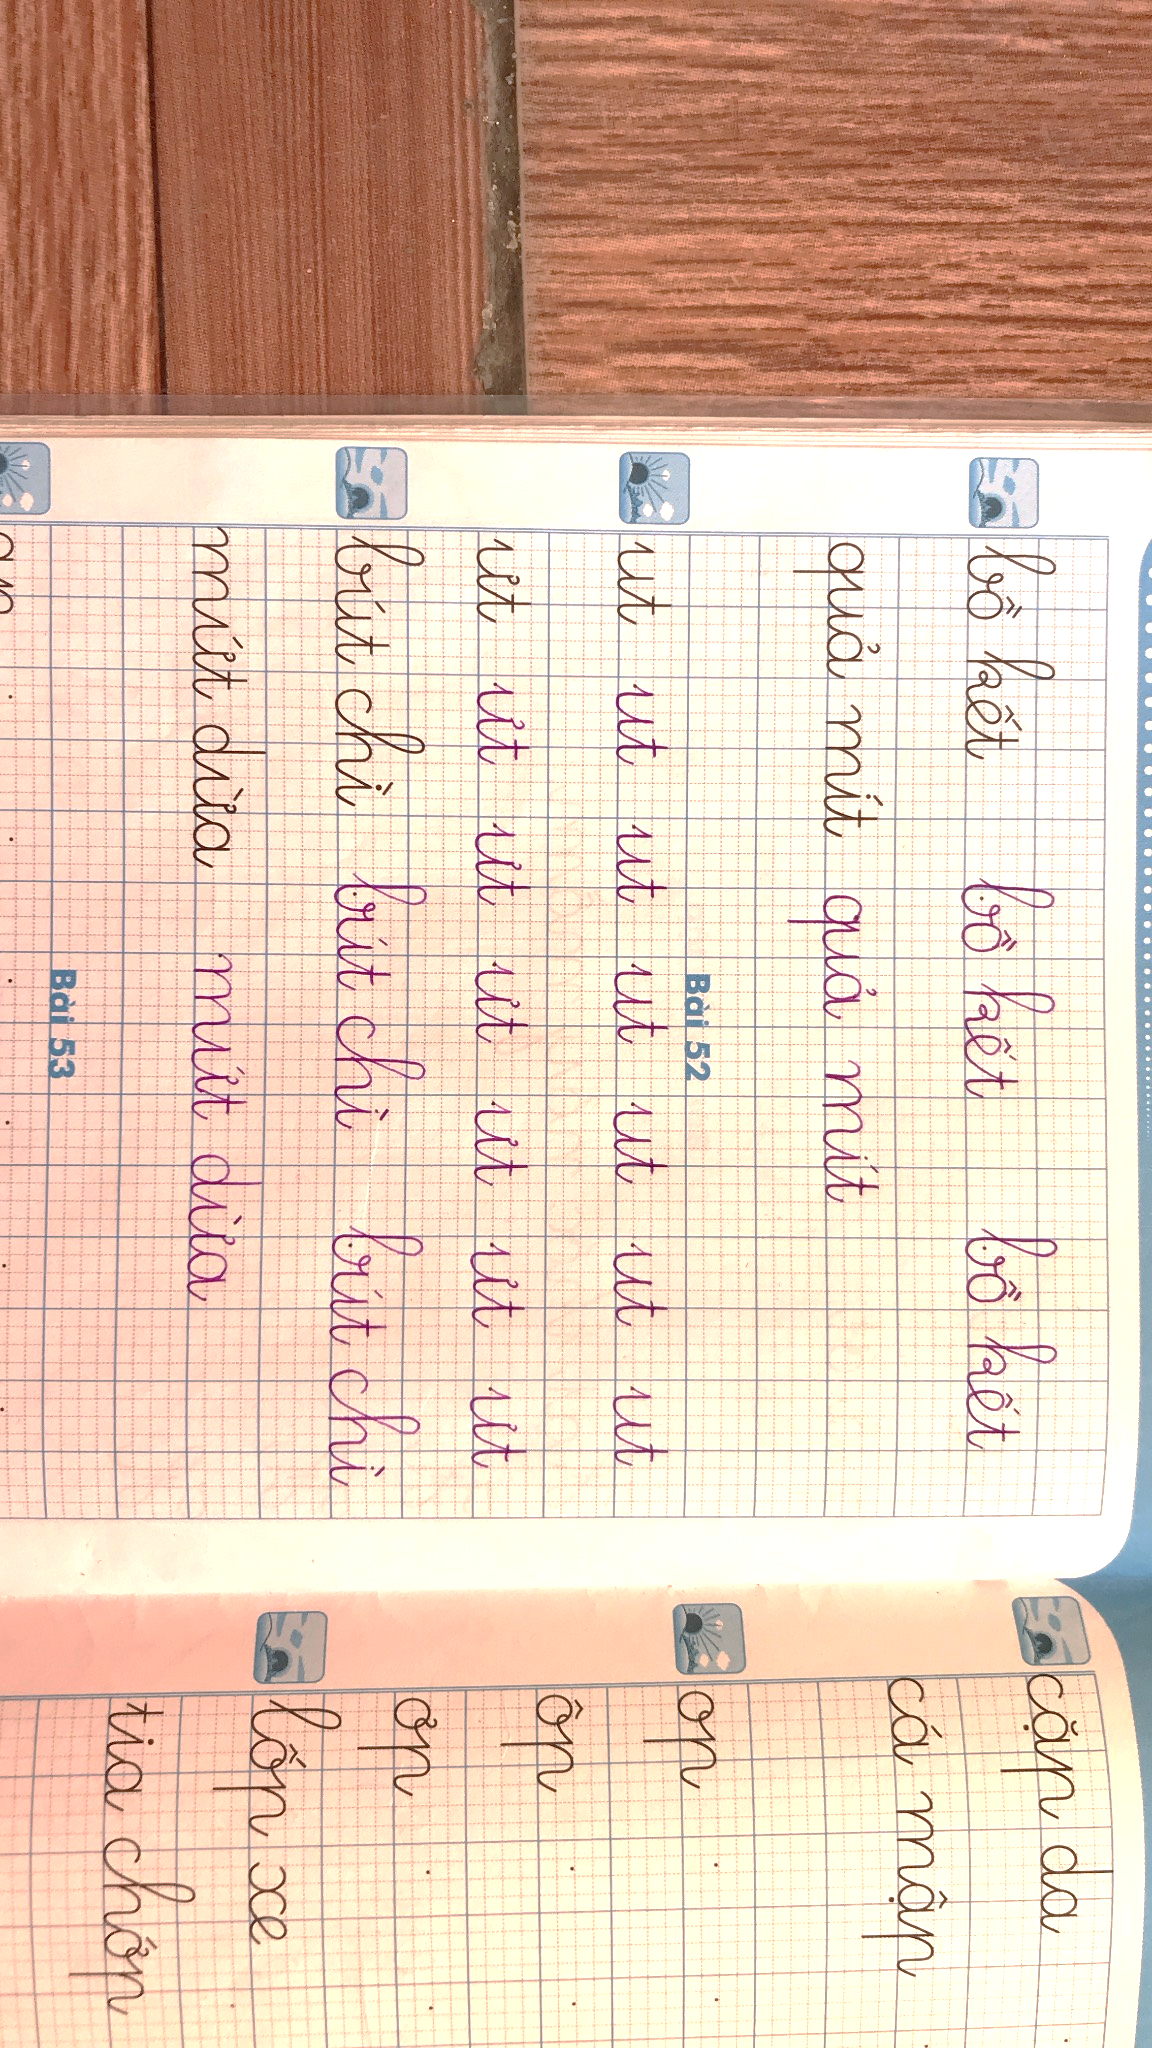 bồ kết bồ kết bồ kết
quả mít quả mít
Bài 52
ut ut ut ut ut ut ut
ưt ưt ưt ưt ưt ưt ưt
bút chì bút chì bút chì
mứt dừa mứt dừa
Bài 53
cặp da
cá mập
op
ôp
ơp
lốp xe
tia chớp